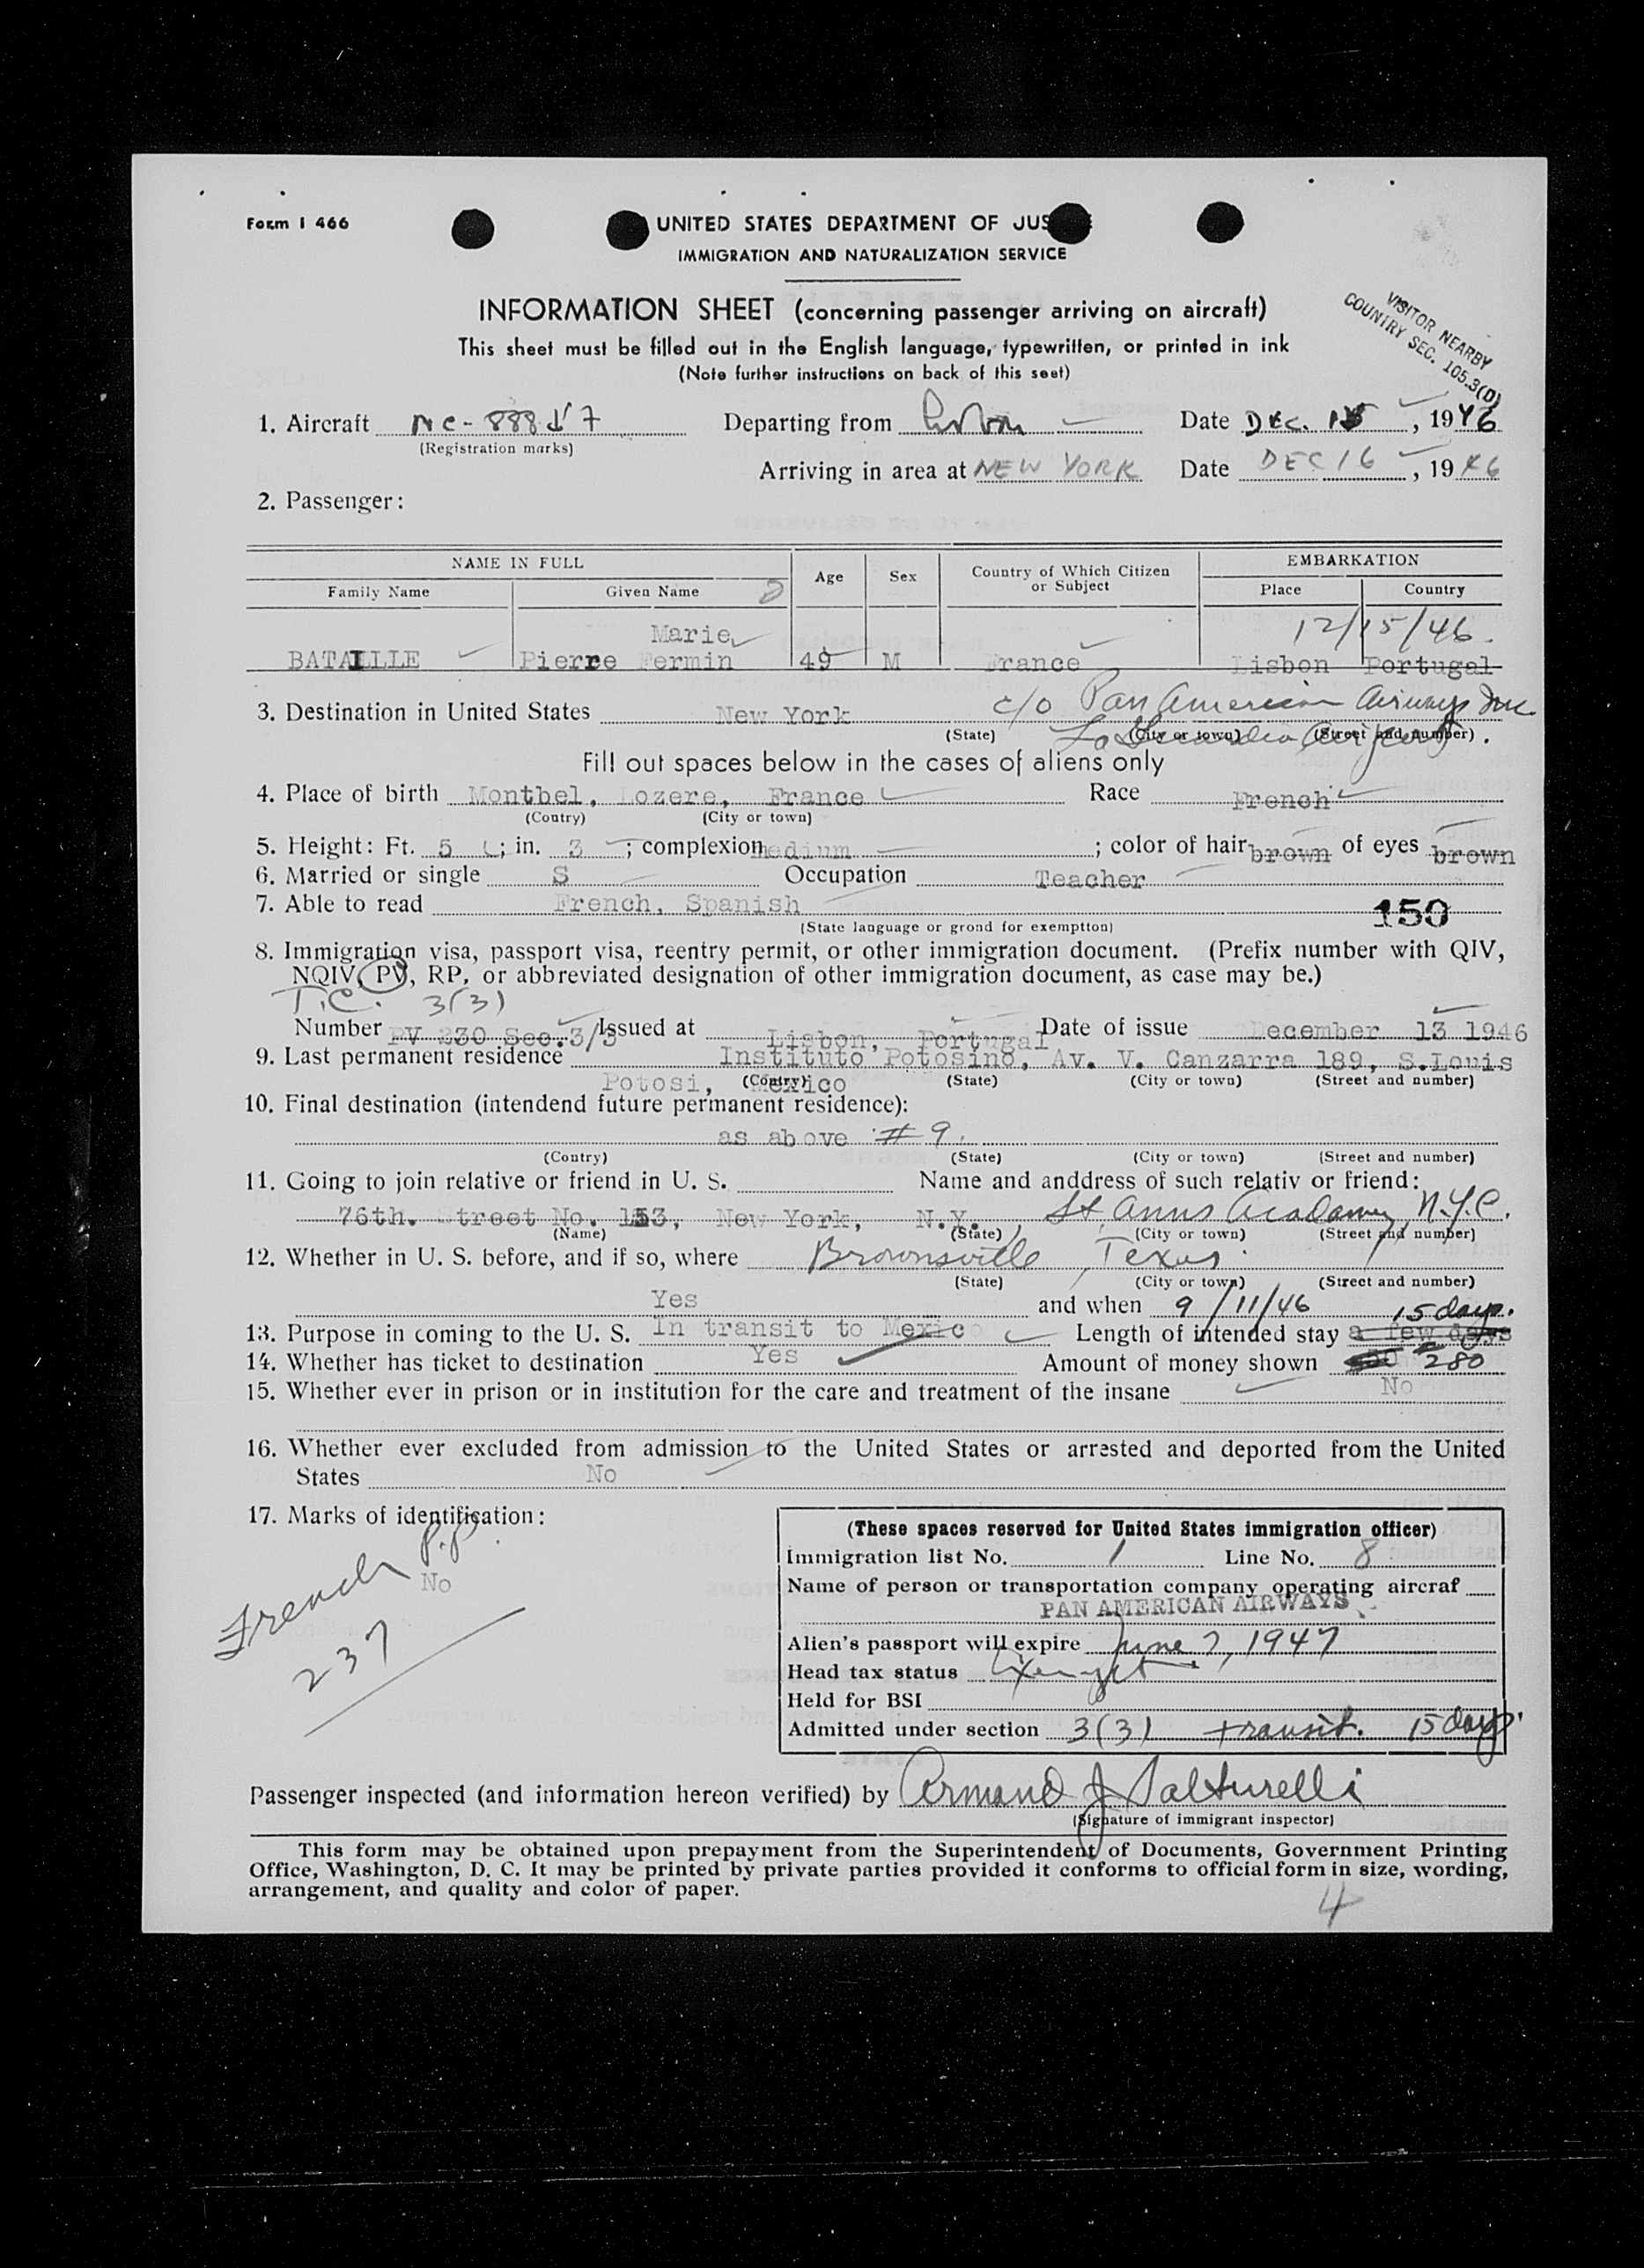 Form I 466
UNITED STATES DEPARTMENT OF JUS
IMMIGRATION AND NATURALIZATION SERVICE
INFORMATION SHEET (concerning passenger arriving on aircraft)
This sheet must be filled out in the English language, typewritten, or printed in ink
(Note further instructions on back of this seet)
VISITOR NEARBY
COUNTRY SEC. 105.3(D)
1. Aircraft NC-888 7 Departing from Lisbon Date DEC. 15, 1946
(Registration marks)
Arriving in area at NEW YORK Date DEC 16, 1946
2. Passenger:
NAME IN FULL Age Sex Country of Which Citizen or Subject EMBARKATION
Family Name Given Name Place Country
Marie 12/15/46.
BATAILLE Pierre Fermin 49 M France Lisbon Portugal
3. Destination in United States New York c/o Pan American Airways Inc.
(State) (City or town) (Street and number)
La Guardia Airport.
Fill out spaces below in the cases of aliens only
4. Place of birth Montbel, Lozere, France Race French
(Contry) (City or town)
5. Height: Ft. 5; in. 3; complexion medium; color of hair brown of eyes brown
6. Married or single S Occupation Teacher
7. Able to read French, Spanish
(State language or grond for exemptton) 150
8. Immigration visa, passport visa, reentry permit, or other immigration document. (Prefix number with QIV,
NQIV, PV, RP, or abbreviated designation of other immigration document, as case may be.)
T.C. 3(3)
Number PV 230 Sec.3/3 Issued at Lisbon, Portugal Date of issue December 13 1946
9. Last permanent residence Instituto Potosino, Av. V. Canzarra 189, S.Louis
Potosi, Mexico
(Contry) (State) (City or town) (Street and number)
10. Final destination (intendend future permanent residence):
as above # 9.
(Contry) (State) (City or town) (Street and number)
11. Going to join relative or friend in U. S. Name and anddress of such relativ or friend:
76th. Street No. 153, New York, N.Y., St Anns Academy, N.Y.C.
(Name) (State) (City or town) (Street and number)
12. Whether in U. S. before, and if so, where Brownsville, Texas
(State) (City or town) (Street and number)
Yes and when 9/11/46 15 days.
13. Purpose in coming to the U. S. In transit to Mexico Length of intended stay a few days
14. Whether has ticket to destination Yes Amount of money shown 280
15. Whether ever in prison or in institution for the care and treatment of the insane No
16. Whether ever excluded from admission to the United States or arrested and deported from the United
States No
17. Marks of identification:
No
French P.P.
237
(These spaces reserved for United States immigration officer)
Immigration list No. 1 Line No. 8
Name of person or transportation company operating aircraf
PAN AMERICAN AIRWAYS
Alien's passport will expire June 7, 1947
Head tax status Exempt
Held for BSI
Admitted under section 3(3) transit. 15 days.
Passenger inspected (and information hereon verified) by Armand J
(Signature of immigrant inspector)
This form may be obtained upon prepayment from the Superintendent of Documents, Government Printing
Office, Washington, D. C. It may be printed by private parties provided it conforms to official form in size, wording,
arrangement, and quality and color of paper.
4